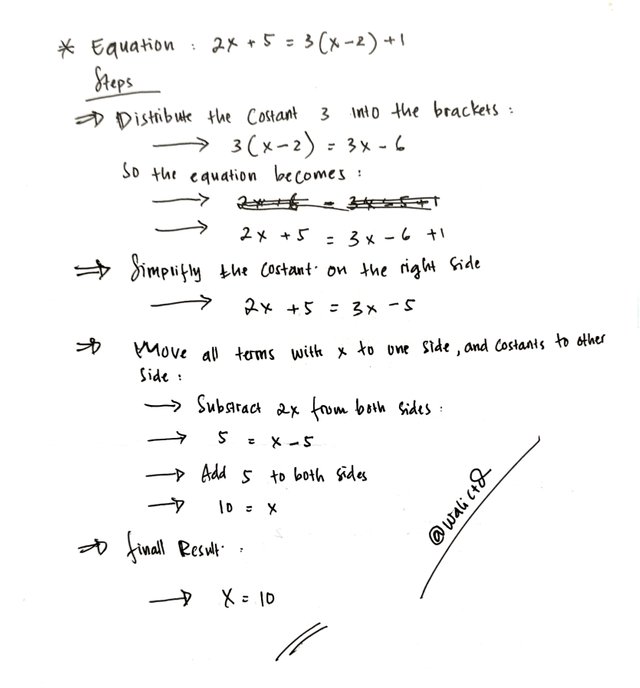 * Equation : 2x + 5 = 3(x-2) +1
Steps
⇒ Distribute the Costant 3 into the brackets :
→ 3(x-2) = 3x - 6
So the equation becomes :
→
→ 2x +5 = 3x - 6 +1
⇒ Simplifly the Costant on the right side
→ 2x +5 = 3x - 5
⇒ Move all terms with x to one side, and Costants to other
side :
→ Substract 2x from both sides :
→ 5 = x - 5
→ Add 5 to both sides
→ 10 = x
⇒ finall Result :
→ X = 10
@walictd